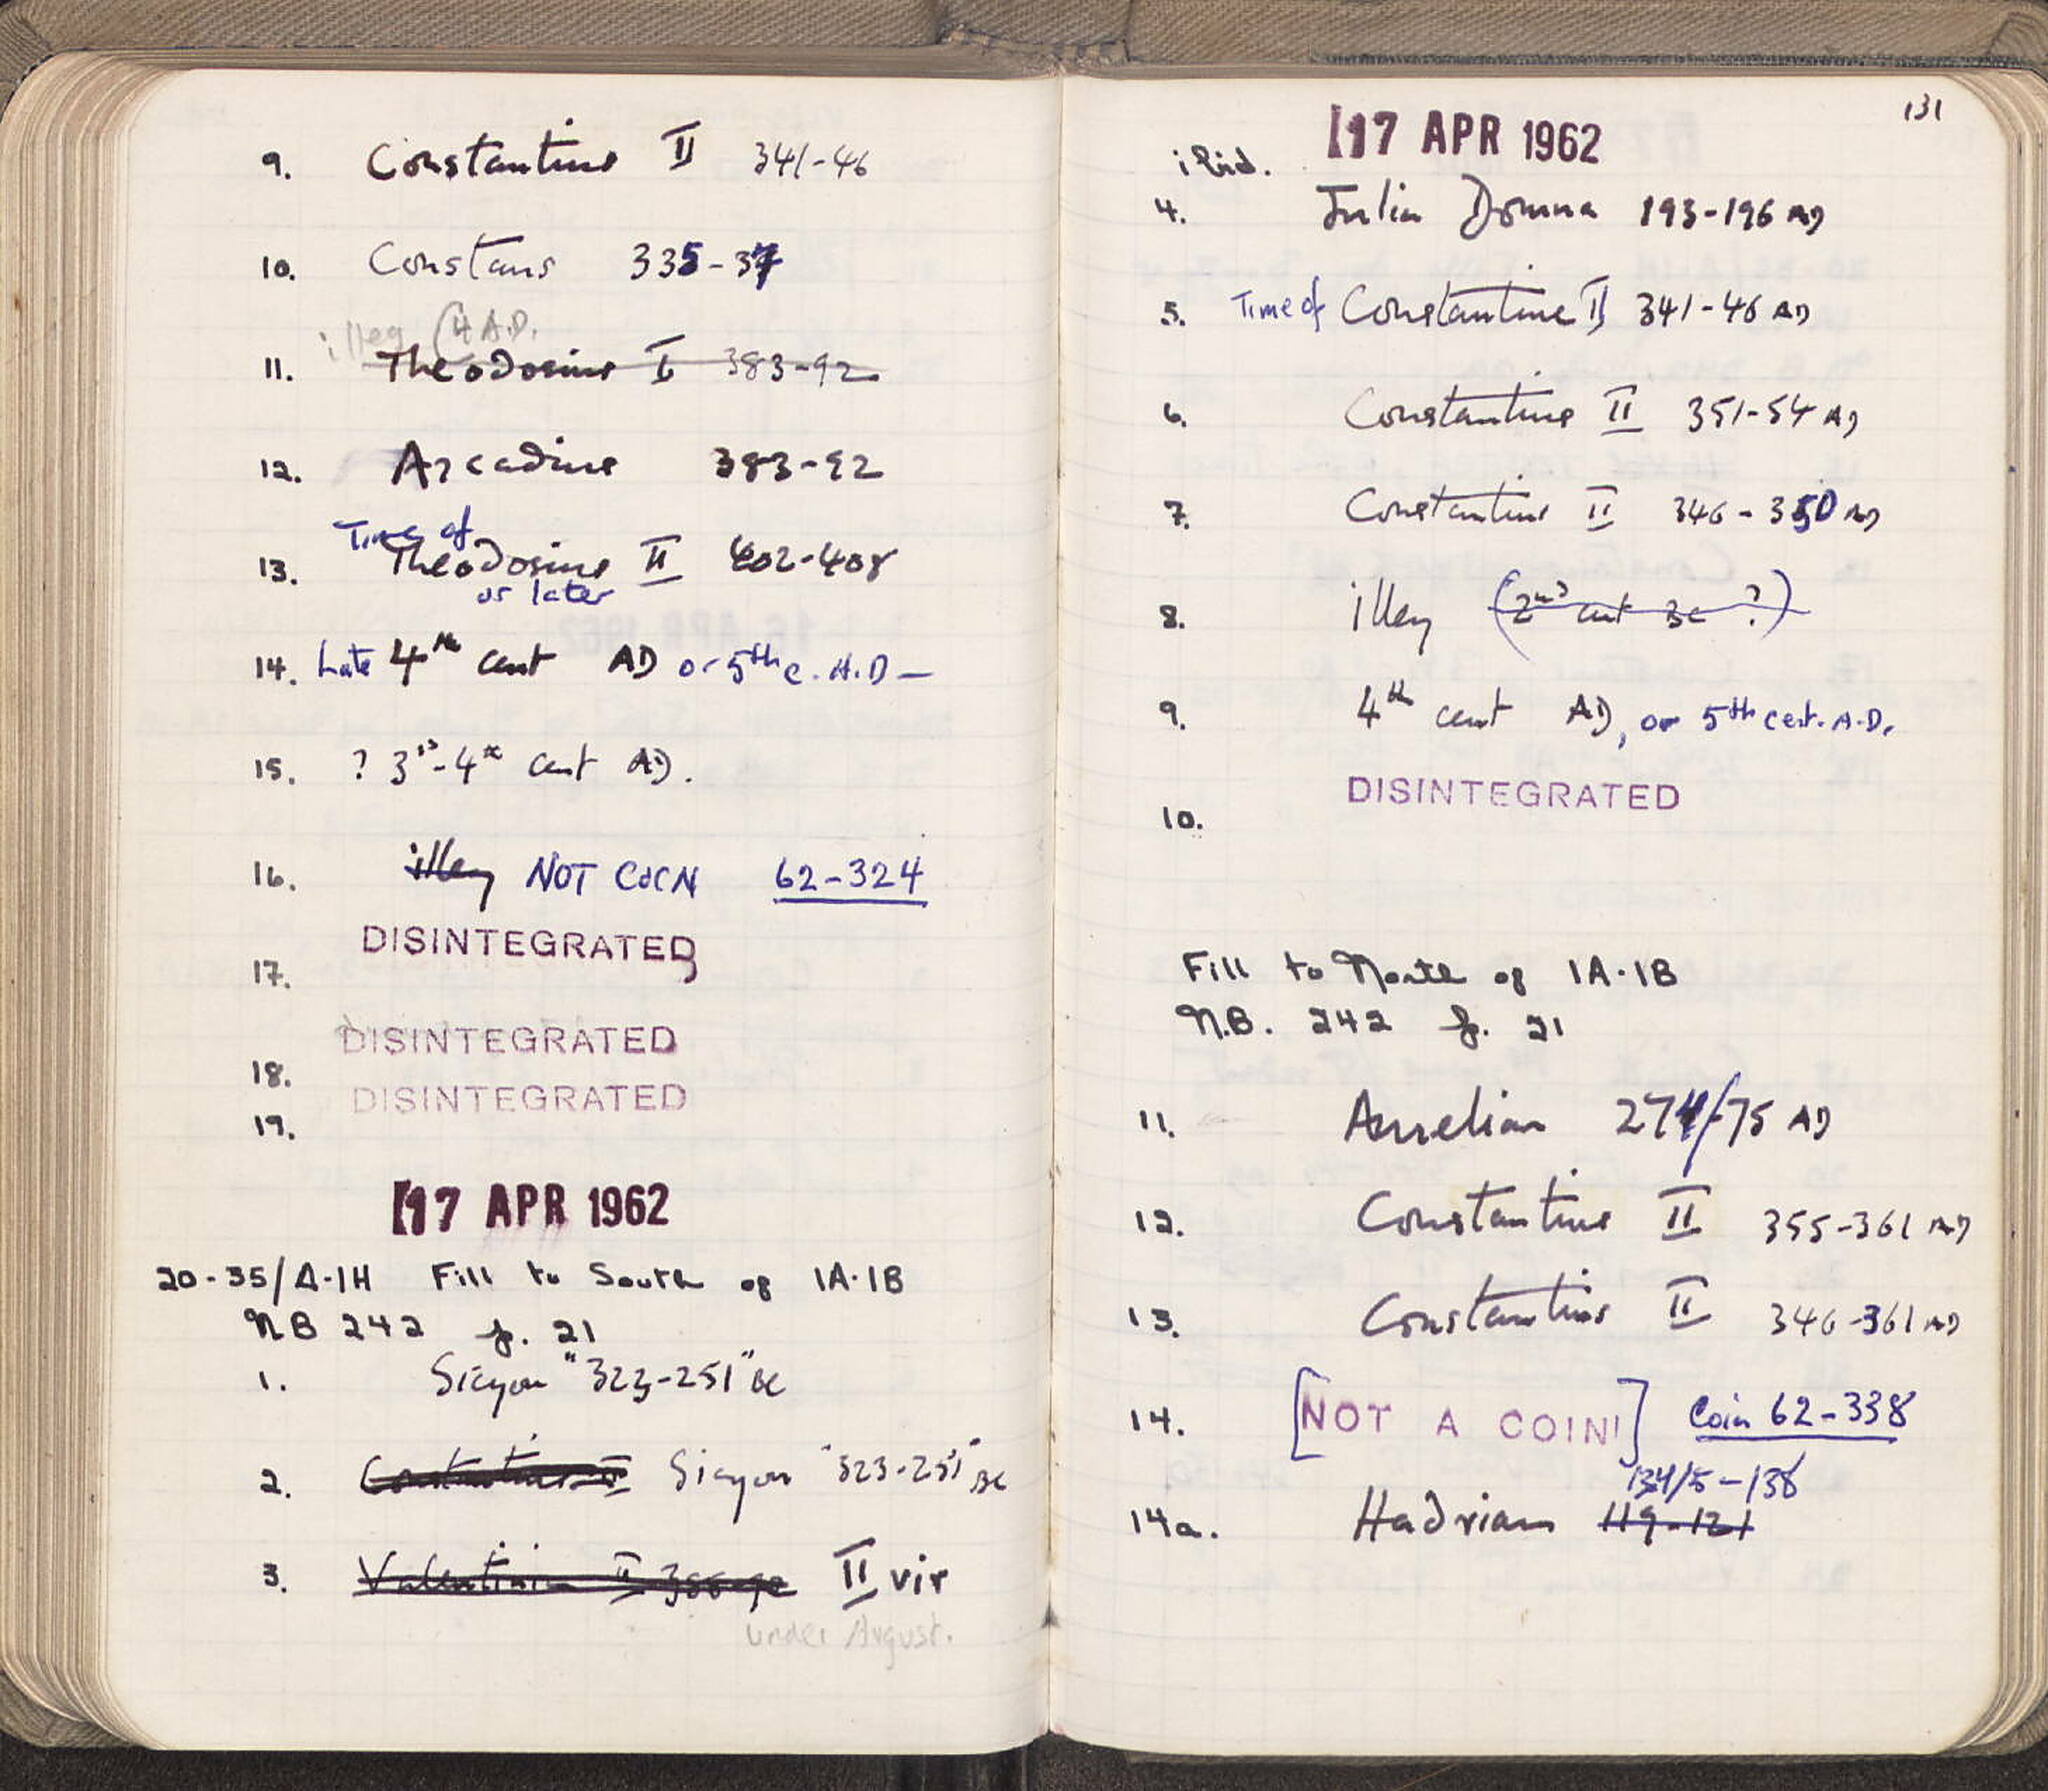 9. Constantius II 341-46
10. Constans 335-37
illeg (4 A.D.
11. Theodosius I 383-92
12. Arcadius 383-92
Time of
13. Theodosius II 402-408
or later
14. Late 4th cent AD or 5th c. A.D-
15. ? 3rd-4th cent AD.
16. illeg NOT COIN 62-324
DISINTEGRATED
17.
DISINTEGRATED
18.
DISINTEGRATED
19.
17 APR 1962
20-35/A-1H Fill to South of 1A-1B
NB 242 p. 21
1. Sicyon "323-251" BC
2. Constantius II Sicyon "323-251" BC
3. Valentinian II II vir
under August.
131
17 APR 1962
ibid.
4. Julia Domna 193-196 AD
5. Time of Constantius II 341-46 AD
6. Constantius II 351-54 AD
7. Constantius II 346-350 AD
8. illeg (2nd cent BC ?)
9. 4th cent AD, or 5th cent. A.D.
DISINTEGRATED
10.
Fill to North of 1A-1B
N.B. 242 p. 21
11. Aurelian 274/75 AD
12. Constantius II 355-361 AD
13. Constantius II 346-361 AD
14. [NOT A COIN!] Coin 62-338
134/5-138
14a. Hadrian 119-121